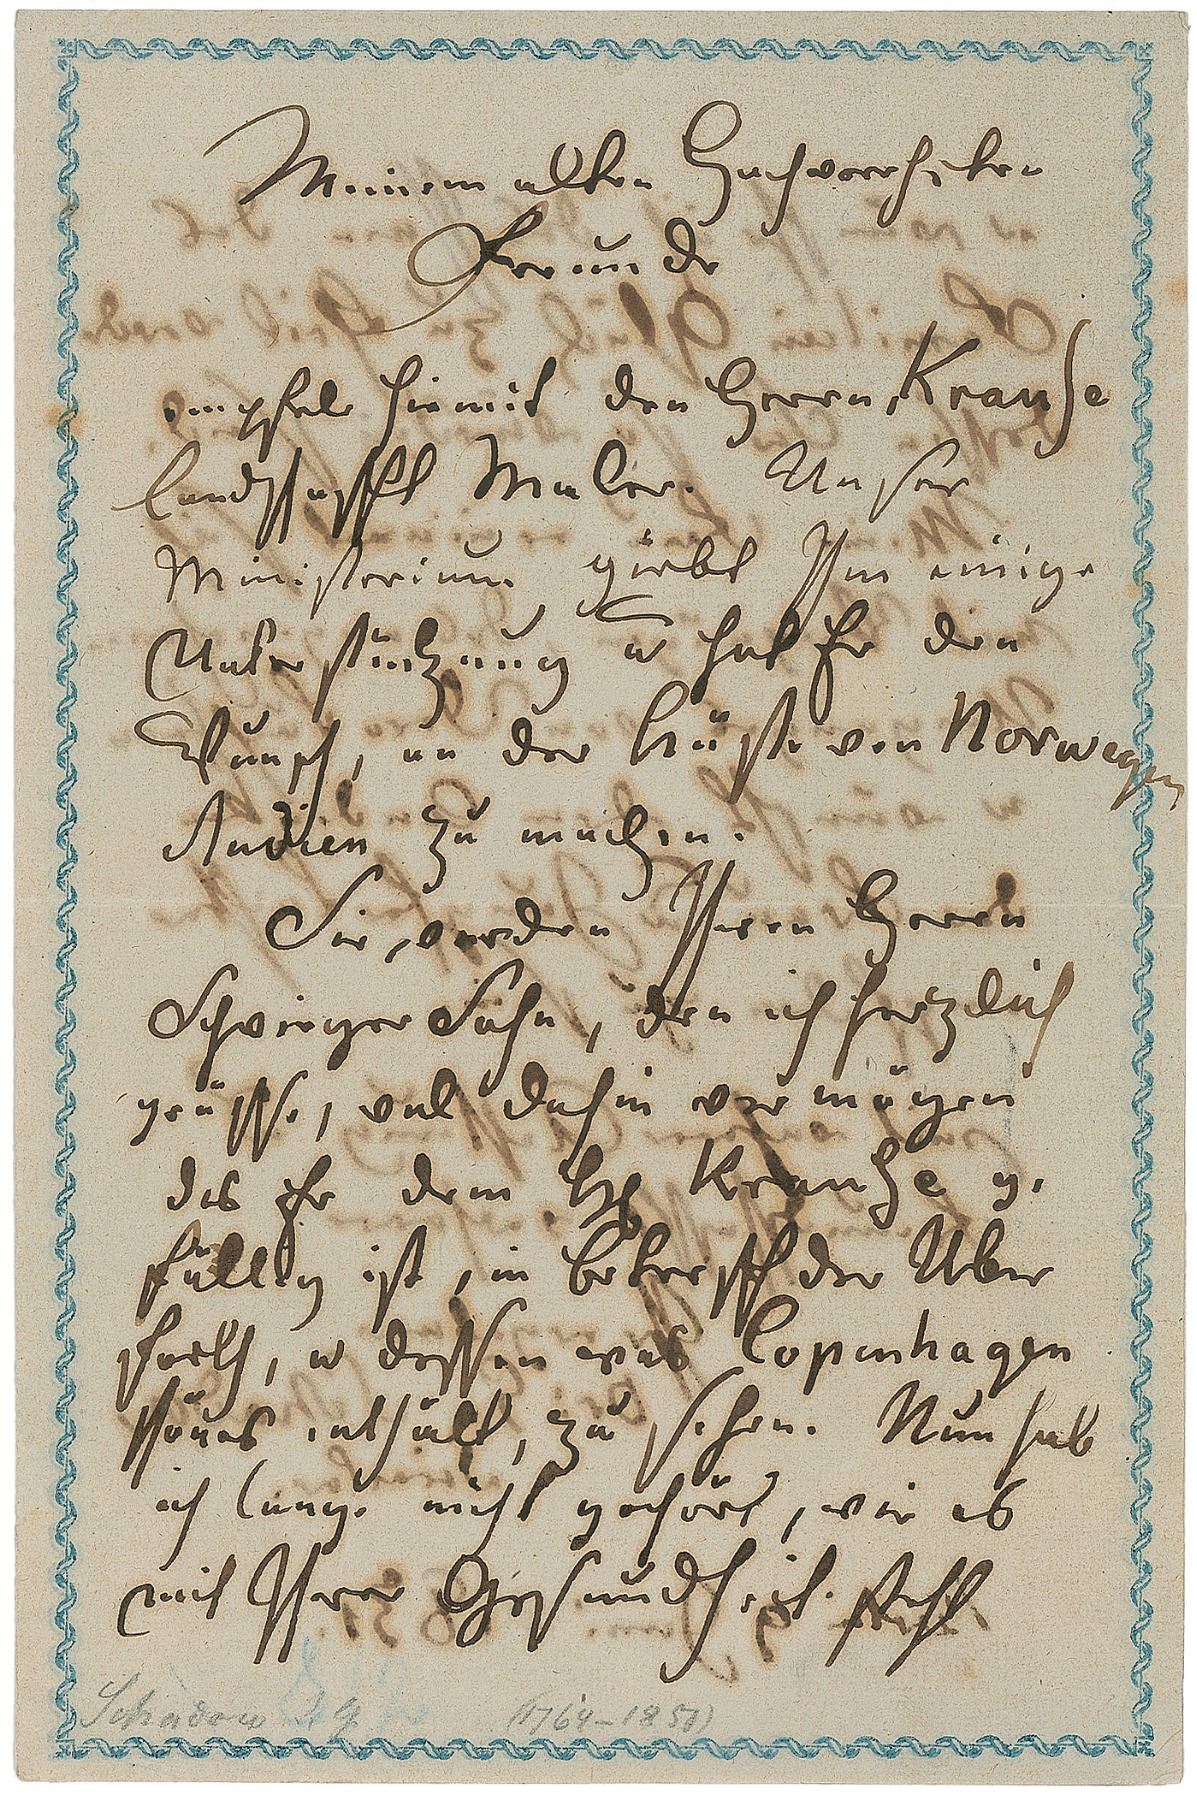 Meinem alten Hochverehrten
Freunde
empfele hiemit den Herrn Krause
Landschafft Maler. Unser
Ministerium giebt Ihm einige
Unterstützung u hat Er den
Wunsch, an der Küste von Norwegen
Studien zu machen.
Sie, werden Ihren Herrn
Schwieger Sohn, den ich herzlich
grüsse, wol dahin vermögen
das Er dem H Krause ge
fällig ist, in betreff der Uber
farth, u dessen was Copenhagen
schönes enthält, zu sehen. Nun hab
ich lange nicht gehört, wie es
mit Ihrer Gesundheit steht
Schadow (1764-1850)